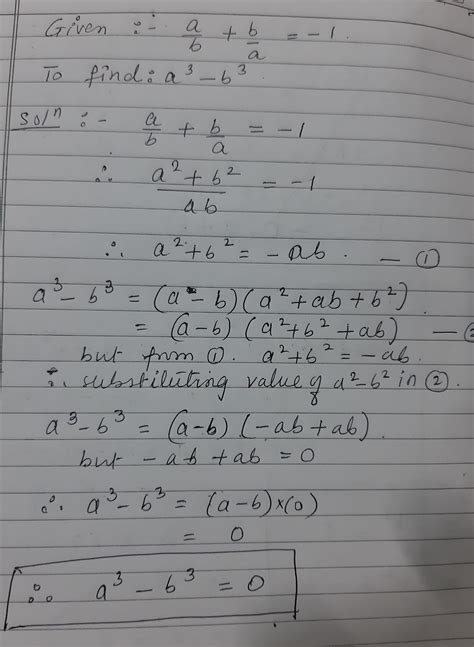 Given :- a/b + b/a = -1.
To find: a³ - b³.
Solⁿ :- a/b + b/a = -1
∴ (a² + b²)/ab = -1
∴ a² + b² = -ab. — ①
a³ - b³ = (a - b) (a² + ab + b²)
= (a-b) (a² + b² + ab) —
but from ①. a² + b² = -ab.
∴ substituting value of a² - b² in ②.
a³ - b³ = (a-b) (-ab + ab).
but -ab + ab = 0
∴ a³ - b³ = (a-b) × (0)
= 0
∴ a³ - b³ = 0